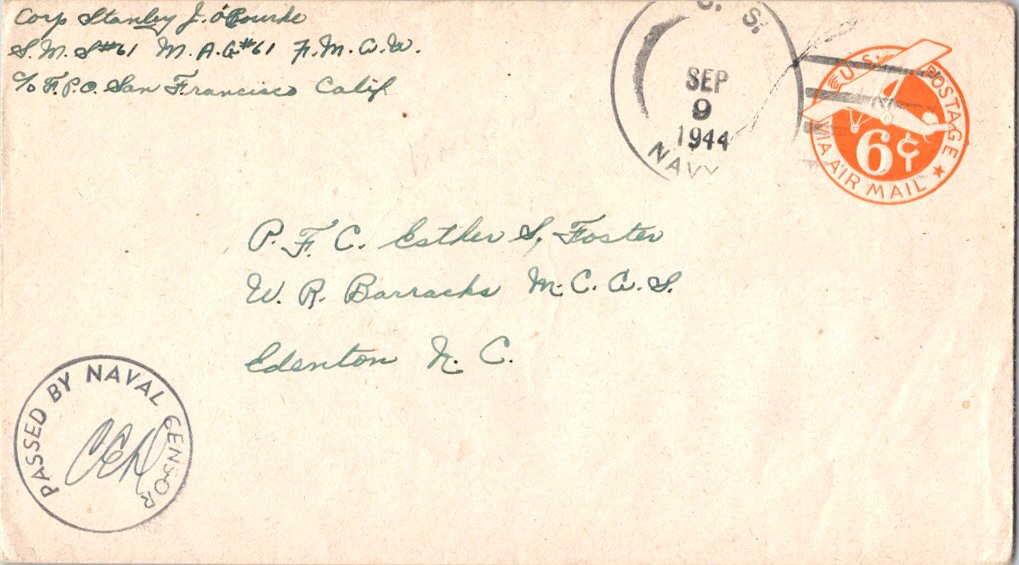 Corp Stanley J. O'Rourke
S.M.S#61 M.A.G#61 F.M.A.W.
c/o F.P.O. San Francisco Calif
U. S.
SEP
9
1944
NAVY
U.S. POSTAGE
6¢
VIA AIR MAIL
P. F. C. Esther S. Foster
W. R. Barracks M. C. A. S.
Edenton N. C.
PASSED BY NAVAL CENSOR